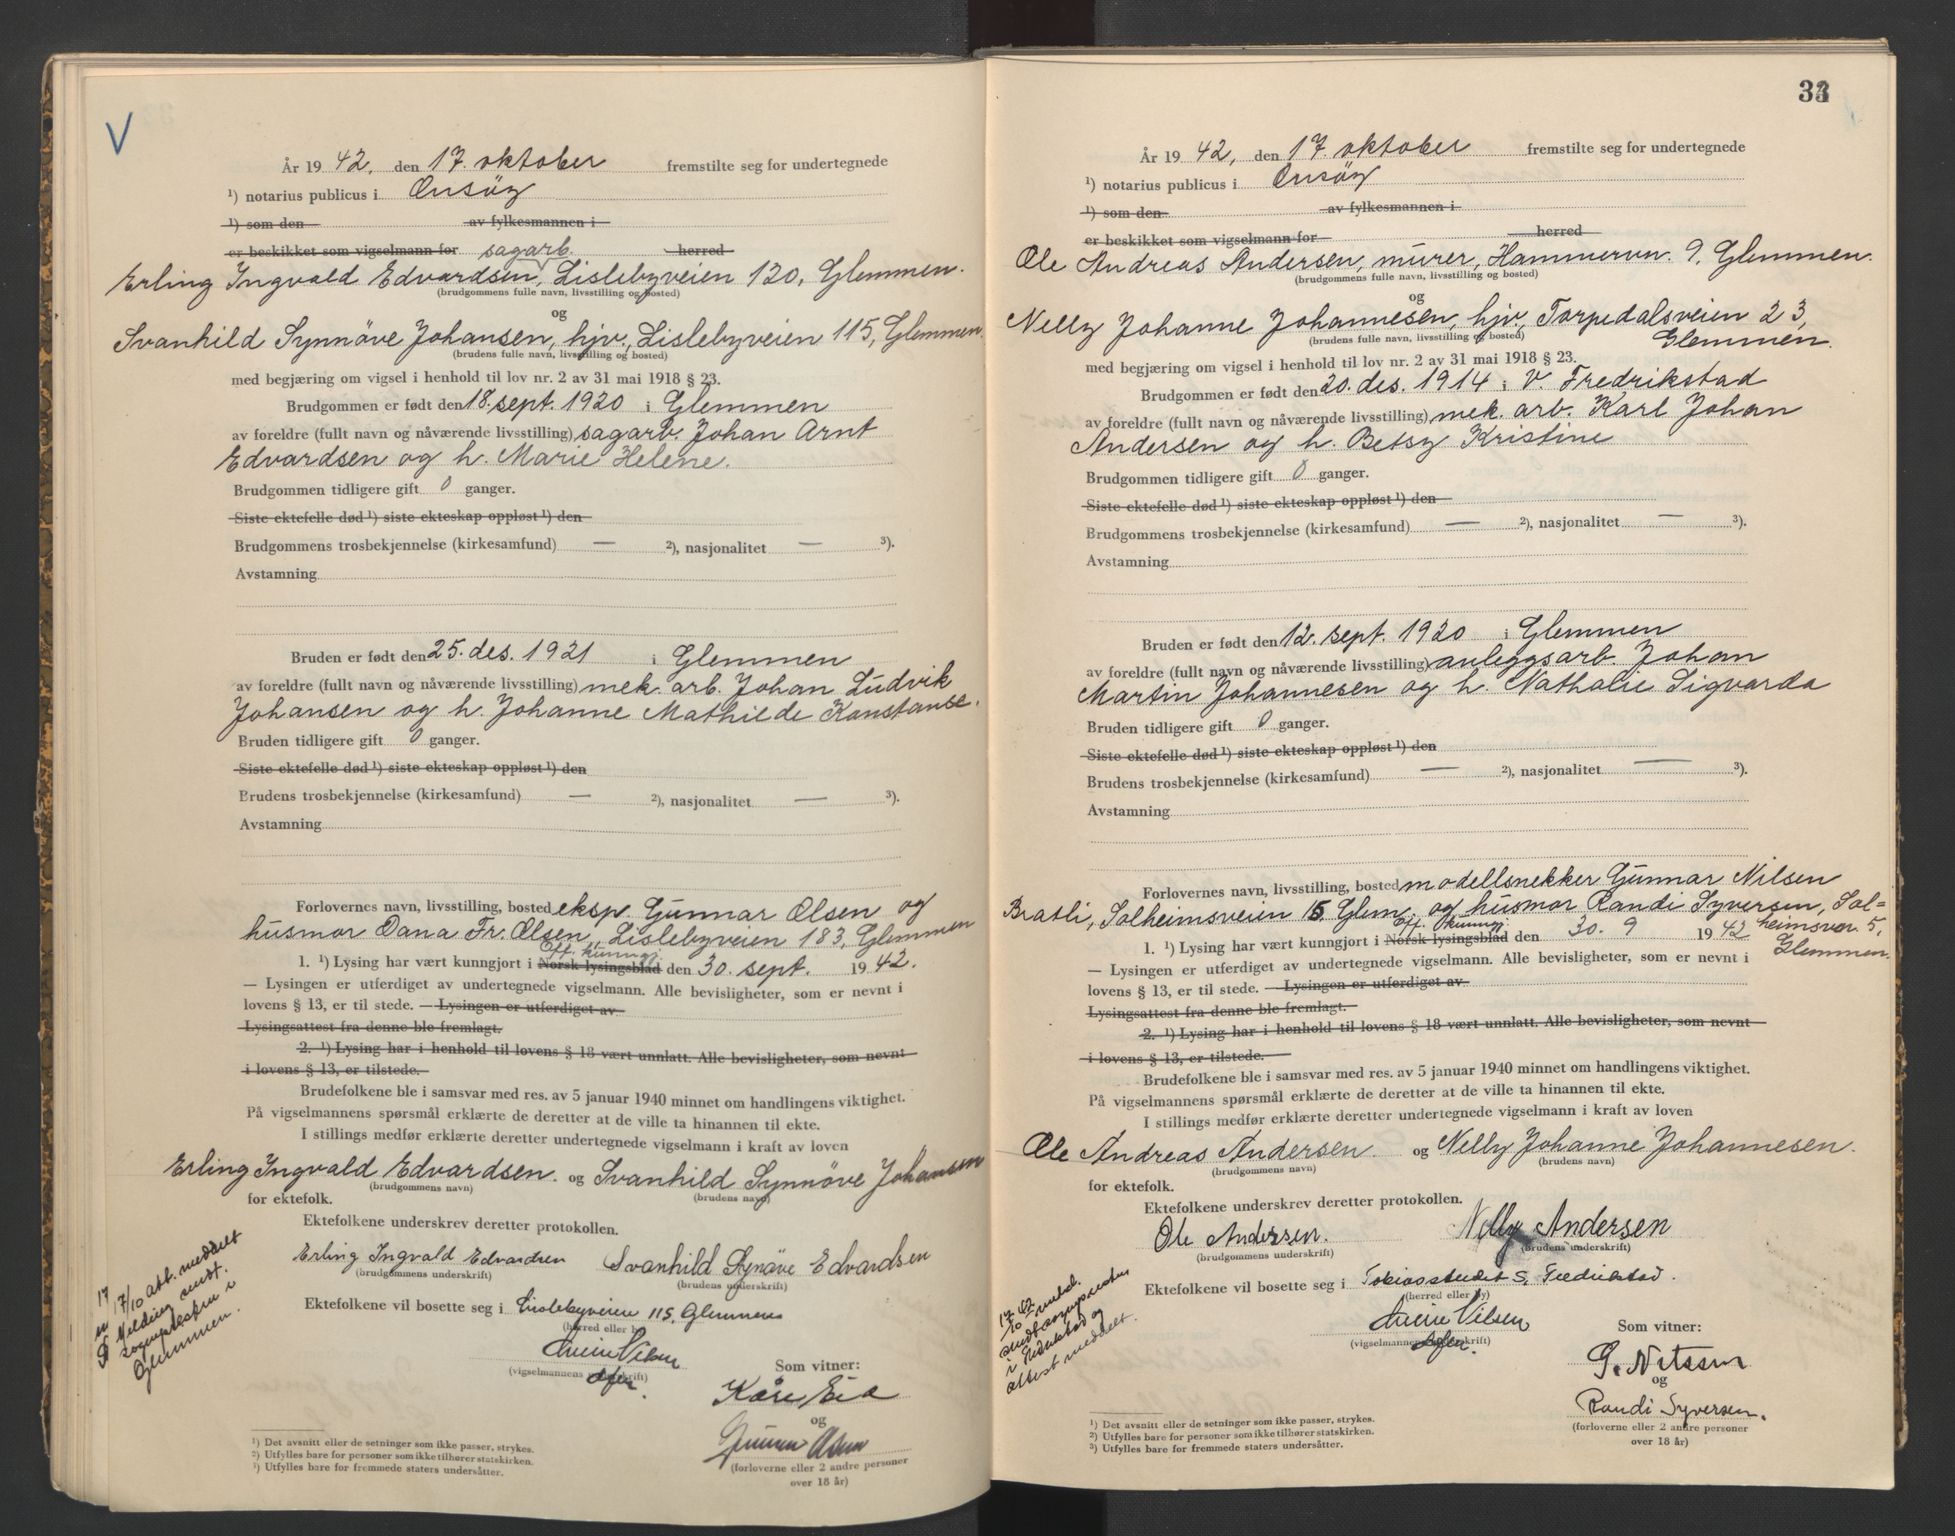 År 1942, den 17. oktober fremstilte seg for undertegnede
¹) notarius publicus i Onsöy
¹) som den av fylkesmannen i
er beskikket som vigselmann for sagarb. herred
Erling Ingvald Edvardsen, Lislebyveien 120, Glemmen.
(brudgommens fulle navn, livsstilling og bosted)
og
Svanhild Synnöve Johansen, hjv., Lislebyveien 115, Glemmen.
(brudens fulle navn, livsstilling og bosted)
med begjæring om vigsel i henhold til lov nr. 2 av 31 mai 1918 § 23.
Brudgommen er født den 18. sept. 1920 i Glemmen
av foreldre (fullt navn og nåværende livsstilling) sagarb. Johan Arnt
Edvardsen og h. Marie Helene.
Brudgommen tidligere gift 0 ganger.
Siste ektefelle død ¹) siste ekteskap oppløst ¹) den
Brudgommens trosbekjennelse (kirkesamfund) — ²), nasjonalitet — ³).
Avstamning
Bruden er født den 25. des. 1921 i Glemmen
av foreldre (fullt navn og nåværende livsstilling) mek. arb. Johan Ludvik
Johansen og h. Johanne Mathilde Konstanse.
Bruden tidligere gift 0 ganger.
Siste ektefelle død ¹) siste ekteskap oppløst ¹) den
Brudens trosbekjennelse (kirkesamfund) — ²), nasjonalitet — ³).
Avstamning
Forlovernes navn, livsstilling, bosted eksp. Gunnar Olsen og
husmor Dana Fr. Olsen, Lislebyveien 183, Glemmen
Off. kunngj.
1. ¹) Lysing har vært kunngjort i Norsk lysingsblad den 30. sept. 1942.
— Lysingen er utferdiget av undertegnede vigselmann. Alle bevisligheter, som er nevnt i
lovens § 13, er til stede. — Lysingen er utferdiget av
Lysingsattest fra denne ble fremlagt.
2. ¹) Lysing har i henhold til lovens § 18 vært unnlatt. Alle bevisligheter, som nevnt
i lovens § 13, er tilstede.
Brudefolkene ble i samsvar med res. av 5 januar 1940 minnet om handlingens viktighet.
På vigselmannens spørsmål erklærte de deretter at de ville ta hinannen til ekte.
I stillings medfør erklærte deretter undertegnede vigselmann i kraft av loven
Erling Ingvald Edvardsen. og Svanhild Synnöve Johansen
(brudgommens navn) (brudens navn)
for ektefolk.
Ektefolkene underskrev deretter protokollen.
Erling Ingvald Edvardsen Svanhild Synöve Edvardsen
(brudgommens underskrift) (brudens underskrift)
Ektefolkene vil bosette seg i Lislebyveien 115, Glemmen
(herred eller by)
17/10 att. meddelt
Melding sendt.
sognepresten i
Glemmen.
(vigselmannens underskrift)
Som vitner:
Kåre Eia
og
Gunnar Olsen
(forloverne eller 2 andre personer
over 18 år)
¹) Det avsnitt eller de setninger som ikke passer, strykes.
²) Utfylles bare for personer som ikke tilhører statskirken.
³) Utfylles bare for fremmede staters undersåtter.
År 1942, den 17. oktober fremstilte seg for undertegnede
¹) notarius publicus i Onsöy
¹) som den av fylkesmannen i
er beskikket som vigselmann for herred
Ole Andreas Andersen, murer, Hammervn. 9, Glemmen.
(brudgommens fulle navn, livsstilling og bosted)
og
Nelly Johanne Johannesen, hjv., Torpedalsveien 23,
Glemmen.
(brudens fulle navn, livsstilling og bosted)
med begjæring om vigsel i henhold til lov nr. 2 av 31 mai 1918 § 23.
Brudgommen er født den 20. des. 1914 i V. Fredrikstad
av foreldre (fullt navn og nåværende livsstilling) mek. arb. Karl Johan
Andersen og h. Betsy Kristine
Brudgommen tidligere gift 0 ganger.
Siste ektefelle død ¹) siste ekteskap oppløst ¹) den
Brudgommens trosbekjennelse (kirkesamfund) — ²), nasjonalitet — ³).
Avstamning
Bruden er født den 12. sept. 1920 i Glemmen
av foreldre (fullt navn og nåværende livsstilling) anleggsarb. Johan
Martin Johannesen og h. Nathalie Sigvarda
Bruden tidligere gift 0 ganger.
Siste ektefelle død ¹) siste ekteskap oppløst ¹) den
Brudens trosbekjennelse (kirkesamfund) — ²), nasjonalitet — ³).
Avstamning
Forlovernes navn, livsstilling, bosted modellsnekker Gunnar Nilsen
Bratli, Solheimsveien 15 Glem. og husmor Randi Syversen, Sol=
heimsvn. 5,
Glemmen.
Off. kunngj.
1. ¹) Lysing har vært kunngjort i Norsk lysingsblad den 30. 9 1942
— Lysingen er utferdiget av undertegnede vigselmann. Alle bevisligheter, som er nevnt i
lovens § 13, er til stede. — Lysingen er utferdiget av
Lysingsattest fra denne ble fremlagt.
2. ¹) Lysing har i henhold til lovens § 18 vært unnlatt. Alle bevisligheter, som nevnt
i lovens § 13, er tilstede.
Brudefolkene ble i samsvar med res. av 5 januar 1940 minnet om handlingens viktighet.
På vigselmannens spørsmål erklærte de deretter at de ville ta hinannen til ekte.
I stillings medfør erklærte deretter undertegnede vigselmann i kraft av loven
Ole Andreas Andersen. og Nelly Johanne Johannesen.
(brudgommens navn) (brudens navn)
for ektefolk.
Ektefolkene underskrev deretter protokollen.
Ole Andersen. Nelly Andersen
(brudgommens underskrift) (brudens underskrift)
Ektefolkene vil bosette seg i Tobiasstredet 5, Fredrikstad.
(herred eller by)
17/10 42 meld.
sendt sognepresten
i Fredrikstad og
attest meddelt.
(vigselmannens underskrift)
Som vitner:
G. Nilssen
og
Randi Syversen.
(forloverne eller 2 andre personer
over 18 år)
¹) Det avsnitt eller de setninger som ikke passer, strykes.
²) Utfylles bare for personer som ikke tilhører statskirken.
³) Utfylles bare for fremmede staters undersåtter.